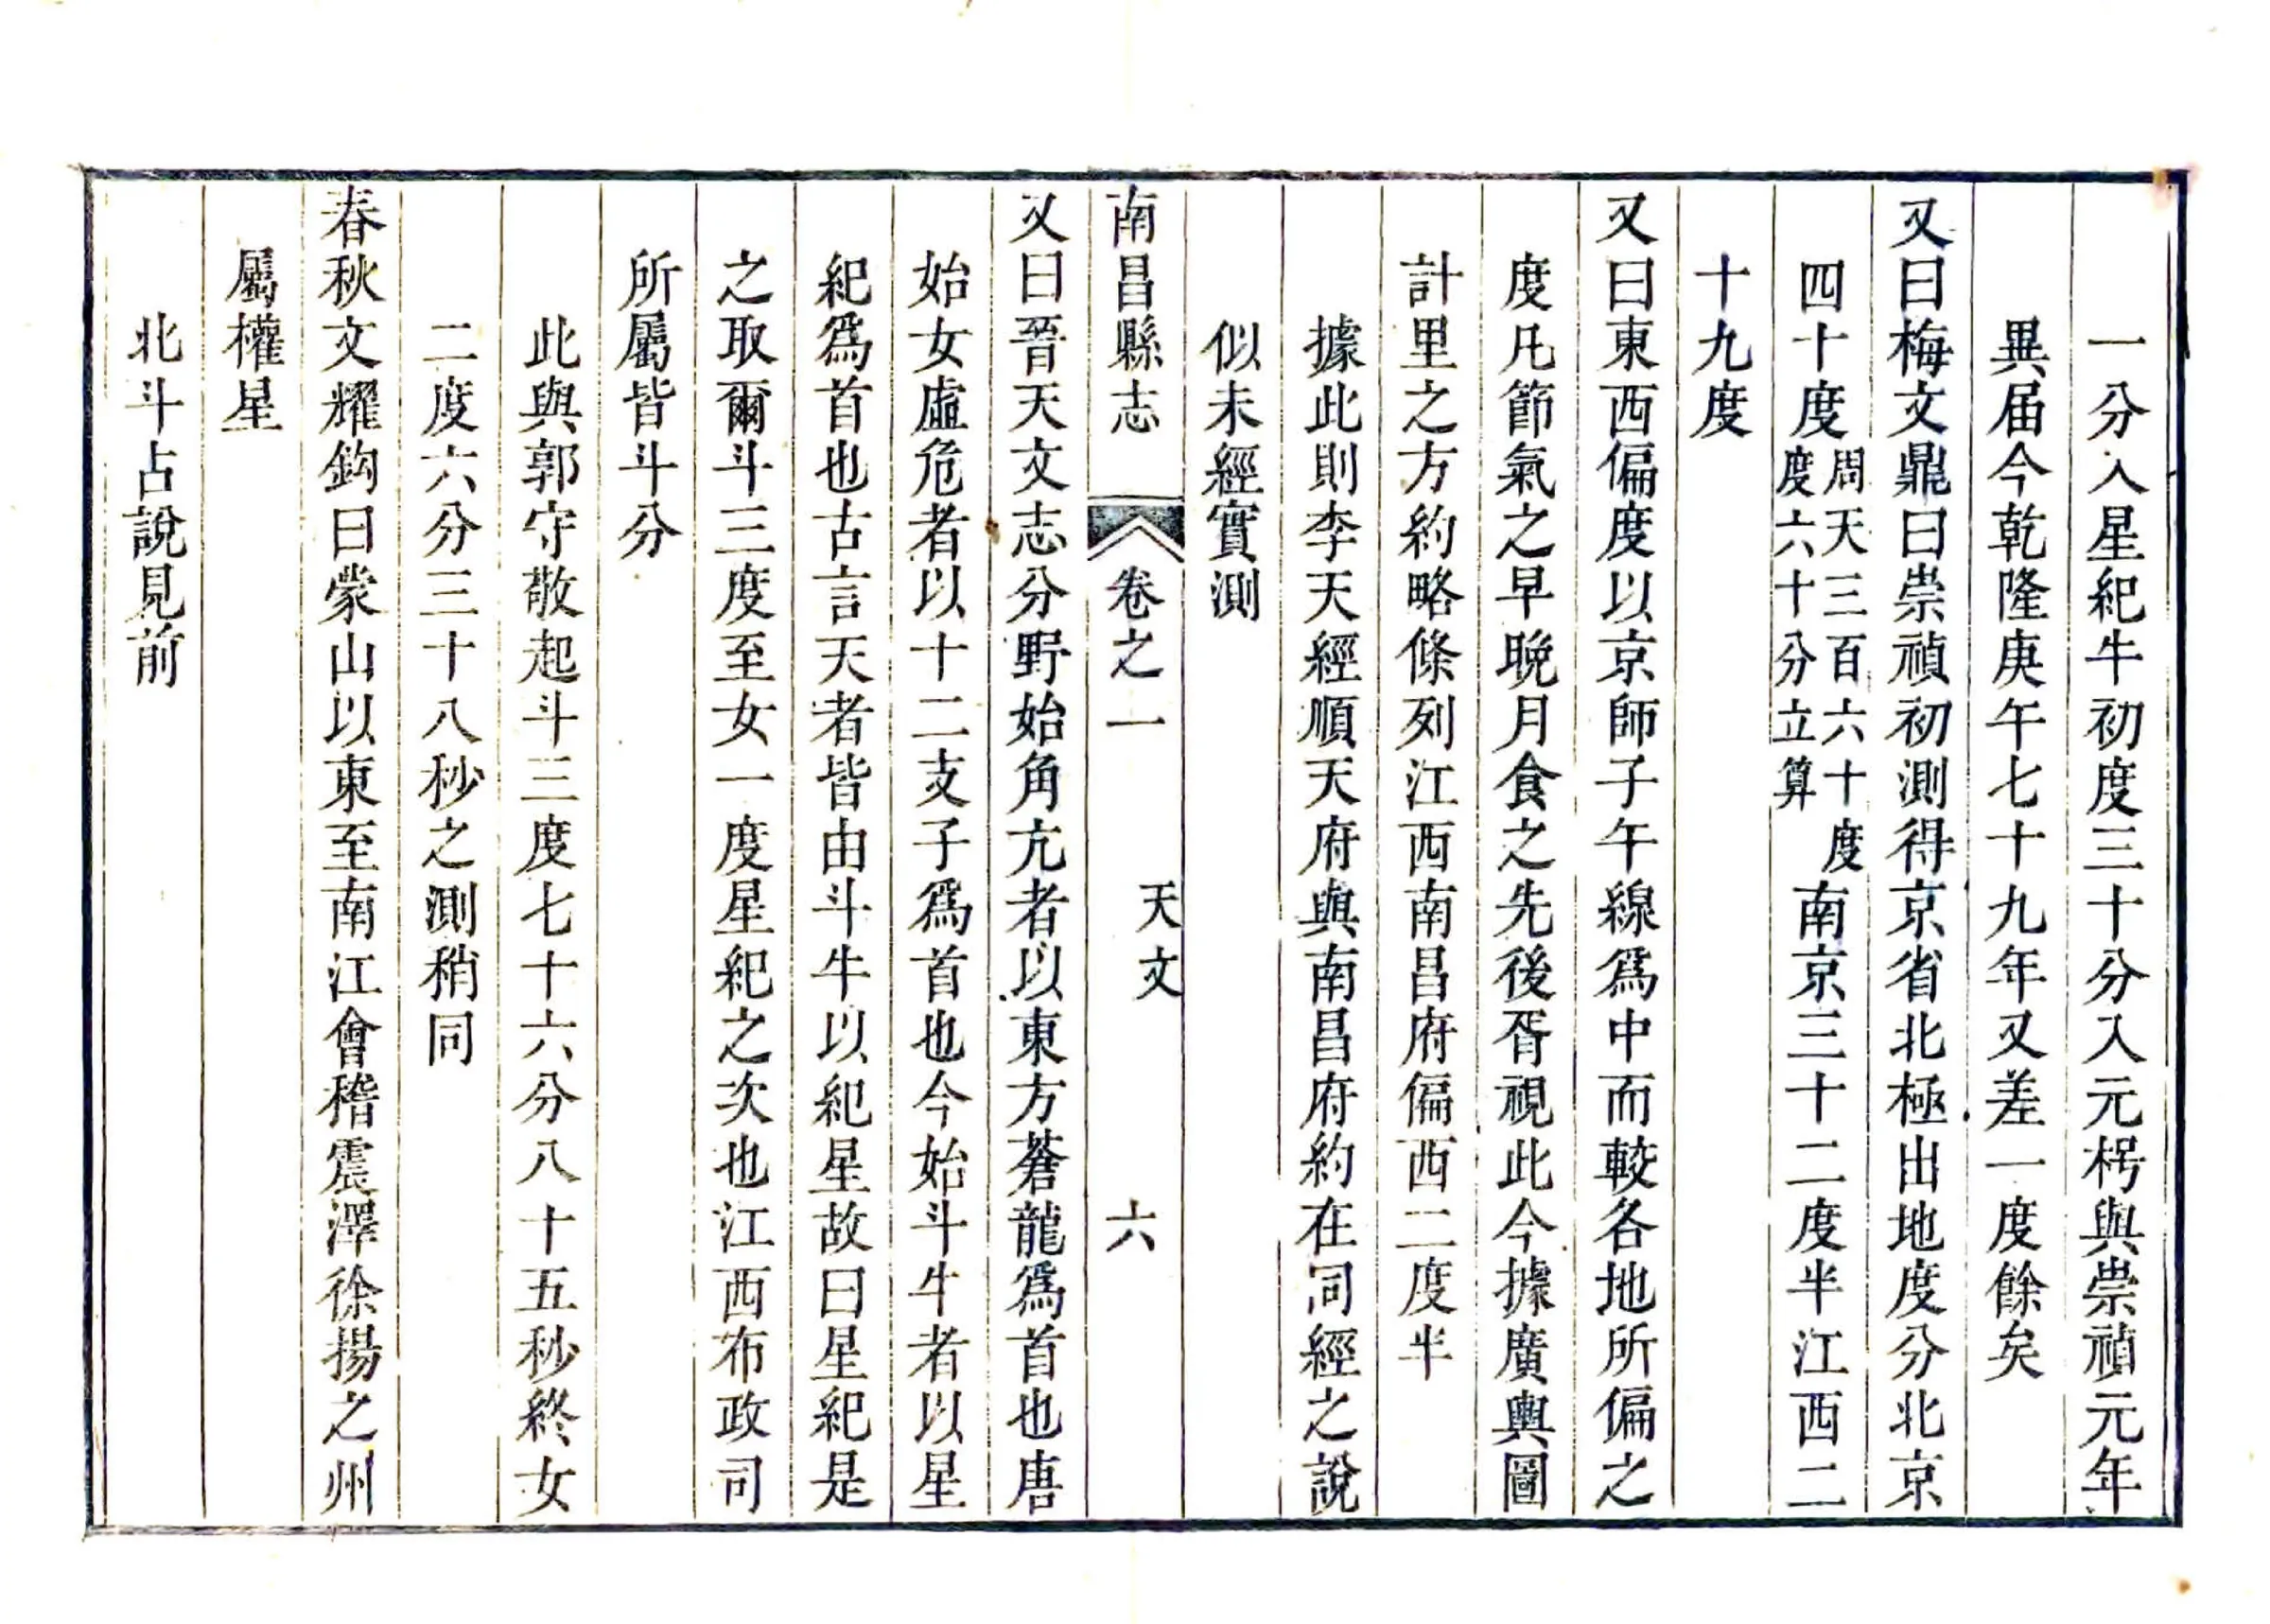 一分入星紀牛初度三十分入元枵與崇禎元年
異届今乾隆庚午七十九年又差一度餘矣
又曰梅文鼎曰崇禎初測得京省北極出地度分北京
四十度周天三百六十度六十分立算南京三十二度半江西二
十九度
又曰東西偏度以京師子午線爲中而較各地所偏之
度凡節氣之早晚月食之先後胥視此今據廣輿圖
計里之方約略條列江西南昌府偏西二度半
據此則李天經順天府與南昌府約在同經之說
似未經實測
南昌縣志 卷之一 天文 六
又曰晉天文志分野始角亢者以東方蒼龍爲首也唐
始女虛危者以十二支子爲首也今始斗牛者以星
紀爲首也古言天者皆由斗牛以紀星故曰星紀是
之取爾斗三度至女一度星紀之次也江西布政司
所屬皆斗分
此與郭守敬起斗三度七十六分八十五秒終女
二度六分三十八秒之測稍同
春秋文耀鈎曰蒙山以東至南江會稽震澤徐揚之州
屬權星
北斗占說見前